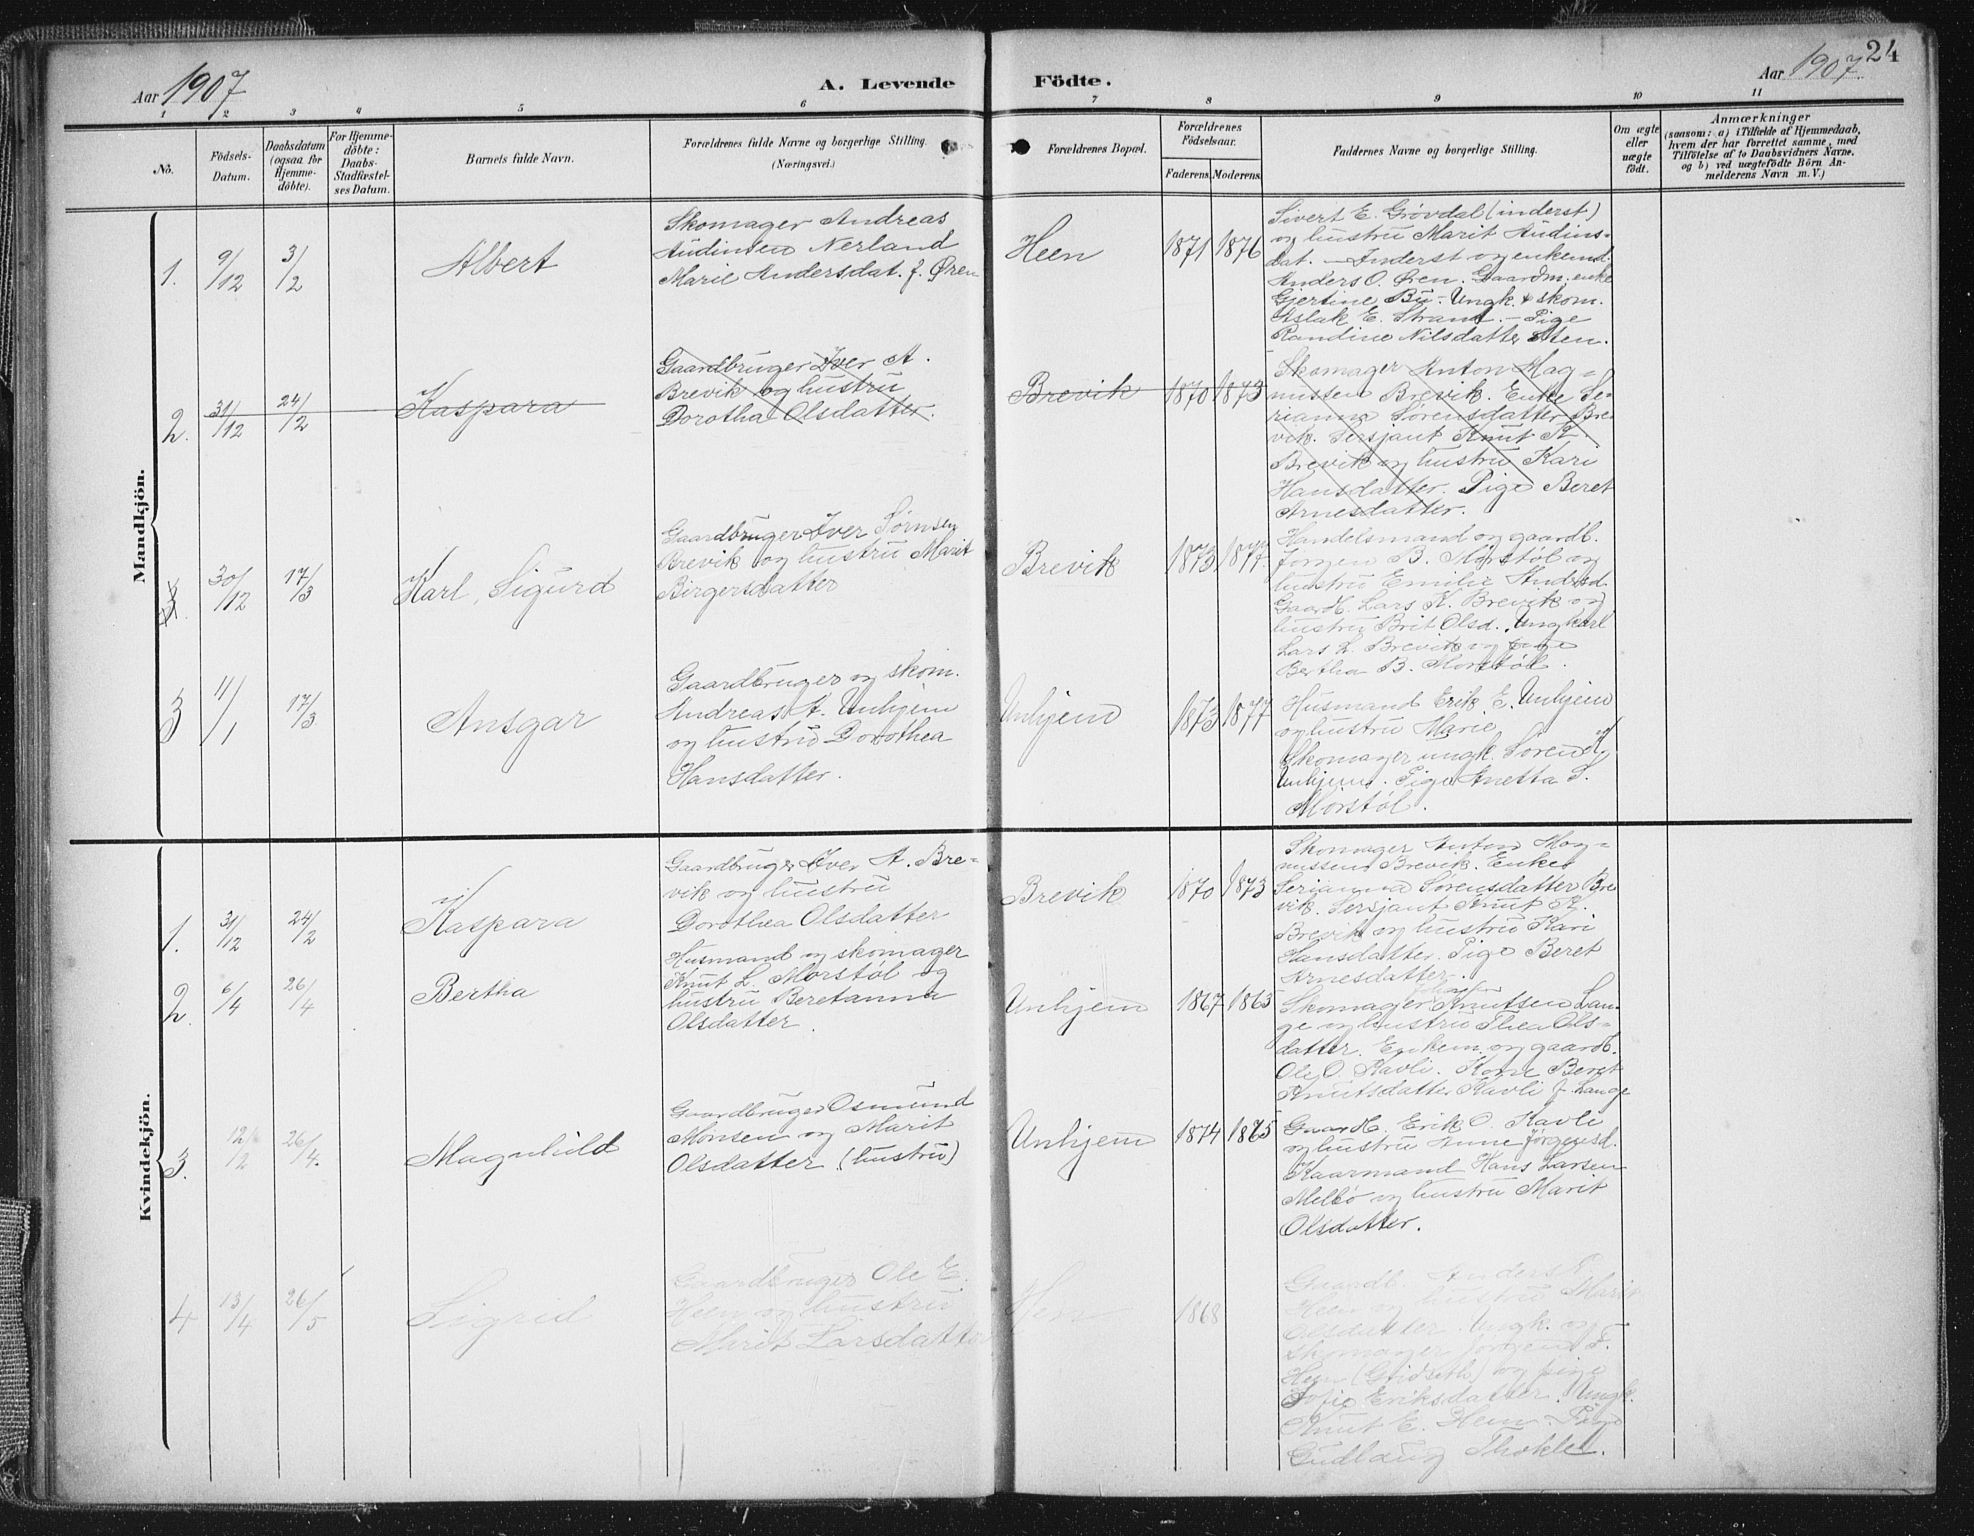 Aar 1907
A. Levende
Födte.
Aar 1907.
24
1 2 3 4 5 6 7 8 9 10 11
No.
Födsels-
Datum.
Daabsdatum
(ogsaa for
Hjemme-
döbte).
For Hjemme-
döbte:
Daabs-
Stadfæstel-
ses Datum.
Barnets fulde Navn.
Forældrenes fulde Navne og borgerlige Stilling.
(Næringsvei.)
Forældrenes Bopæl.
Forældrenes
Födselsaar.
Faderens. Moderens.
Faddernes Navne og borgerlige Stilling.
Om ægte
eller
uægte
født.
Anmærkninger
(saasom: a) i Tilfælde af Hjemmedaab,
hvem der har forrettet samme, med
Tilföielse af to Daabsvidners Navne.
og b) ved uægtefödte Börn An-
melderens Navn m. V.)
Mandkjön.
1.
9/12
3/2
Albert
Skomager Andreas
Audinsen Nerland
Marie Andersdat. f. Øren
Heen
1871 1876
Sivert E. Grøvdal (inderst)
og hustru Marit Audins-
dat. – Inderst og enkemd.
Anders O. Øren. Gaardm. enke
Gjertine Bu – Ungk. & skom.
Aslak E. Strand. – Pige
Randine Nilsdatter Sten.
2.
31/12
24/2
Kaspara
Gaardbruger Iver A.
Brevik og hustru
Dorotha Olsdatter.
Brevik
1870 1873
Skomager Anton Mag-
nussen Brevik. Enke Se-
rianna Sørensdatter Bre-
vik. Sersjant Knut A.
Brevik og hustru Kari
Hansdatter. Pige Beret
Arnesdatter.
30/12
17/3
Karl, Sigurd
Gaardbruger Iver Sørnsen
Brevik og hustru Marit
Birgersdatter
Brevik
1873 1877.
Handelsmand og gaardb.
Jørgen B. Morstøl og
hustru Emilie Andrsd.
Gaardb. Lars K. Brevik og
hustru Brit Olsd. Ungkarl
Lars L. Brevik og pige
Bertha B. Morstøl.
3
11/1
17/3
Ansgar
Gaardbruger og skom.
Andreas A. Unhjem
og hustru Dorothea
Hansdatter.
Unhjem
1873 1877
Husmand Erik E. Unhjem
og hustru Marie
Skomager ungk. Søren
Unhjem. Pige Anetta S.
Morstøl.
Kvindekjön.
1.
31/12
24/2
Kaspara
Gaardbruger Iver A. Bre-
vik og hustru
Dorothea Olsdatter
Brevik
1870 1873
Skomager Anton Mag-
nussen Brevik. Enke
Serianna Sørensdatter Bre
vik. Sersjant Knut A.
Brevik og hustru Kari
Hansdatter. Pige Beret
Arnesdatter.
2.
6/4
26/4
Bertha
Husmand og skomager
Knut L. Morstøl og
hustru Beretanna
Olsdatter.
Unhjem
1867 1865
Skomager Knutsen Lan-
ge og hustru Thea Ols-
datter. Enkem. og gaardb.
Ole O. Kavli. Kone Beret
Knutsdatter Kavli f. Lange
3.
12/2
26/4.
Magnhild
Gaardbruger Osmund
Monsen og Marit
Olsdatter (hustru)
Unhjem
1874 1875
Gaardb. Erik O. Kavli
og hustru Anne Jørgensd.
Kaarmand Hans Larsen
Melbø og hustru Marit
Olsdatter.
4
13/4
26/5
Sigrid
Gaardbruger Ole E.
Heen og hustru
Marit Larsdatter
Hen
1868
Gaardb. Anders P.
Heen og hustru Marit
Olsdatter. Ungk. og
skomager Jørgen E.
Heen (Gridseth) og pige
Sofie Eriksdatter. Ungk.
Knut E. Hem. Pige
Gudlaug Thokle.